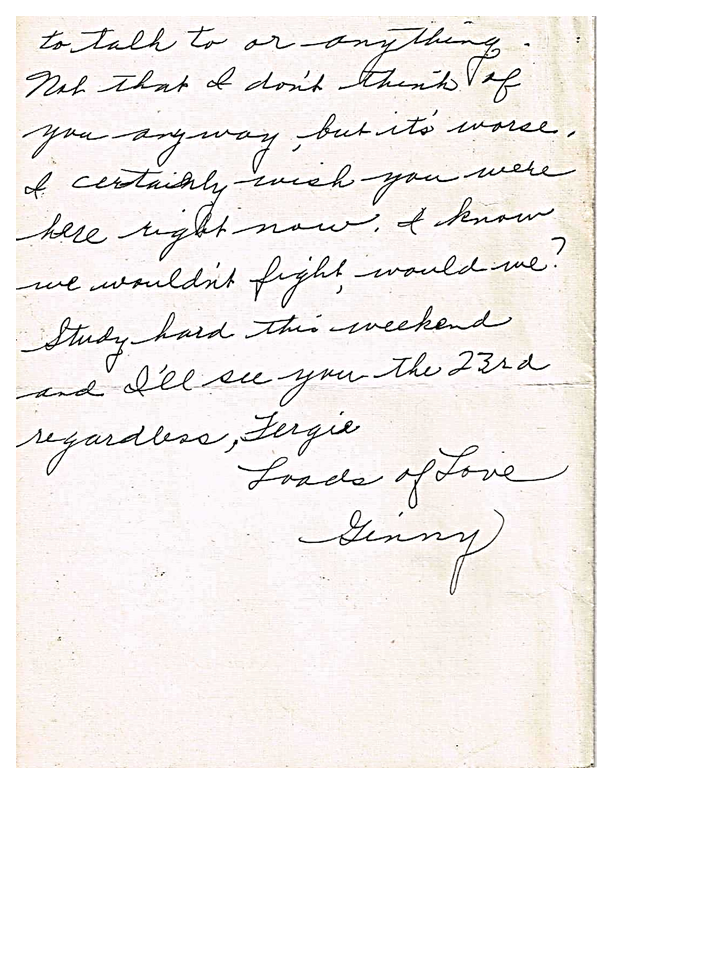 to talk to or anything.
Not that I don't think of
you anyway, but it's worse.
I certainly wish you were
here right now. I know
we wouldn't fight, would we?
Study hard this weekend
and I'll see you the 23rd
regardless, Fergie
Loads of Love
Ginny